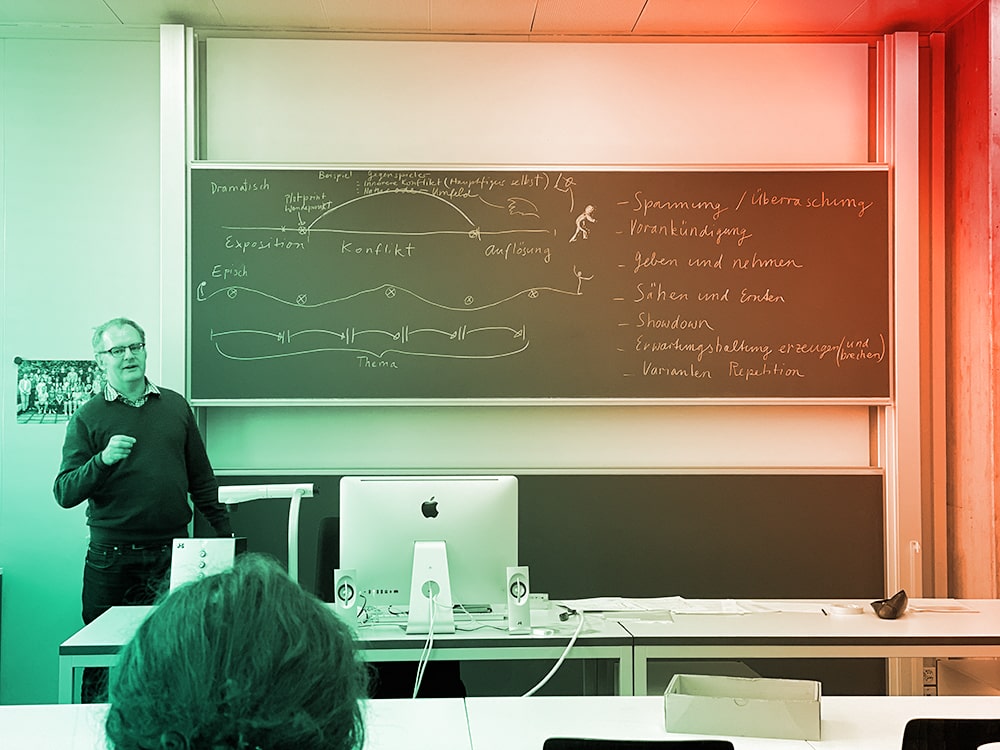 Dramatisch
Beispiel Gegenspieler
- Innerere Konflikt (Hauptfigur selbst)
Umfeld
Plotpoint
Wendepunkt
Exposition Konflikt Auflösung
Episch
Thema
- Spannung / Überraschung
- Vorankündigung
- Geben und nehmen
- Sähen und Ernten
- Showdown
- Erwartungshaltung erzeugen (und brechen)
- Varianten Repetition